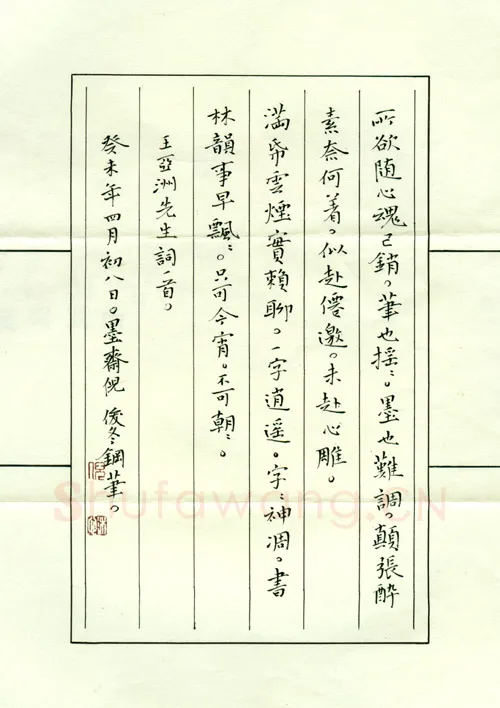 所欲随心魂已銷。筆也摇〻。墨也難調。顛張醉
素奈何着。似赴僊邀。未赴心雕。
满帋雲煙實賴聊。一字逍遥。字〻神凋。書
林韻事早飄〻。只可今宵。不可朝〻。
王亞洲先生詞一首。
癸未年四月初八日。墨齋倪俊冬鋼筆。
Shufawang.CN